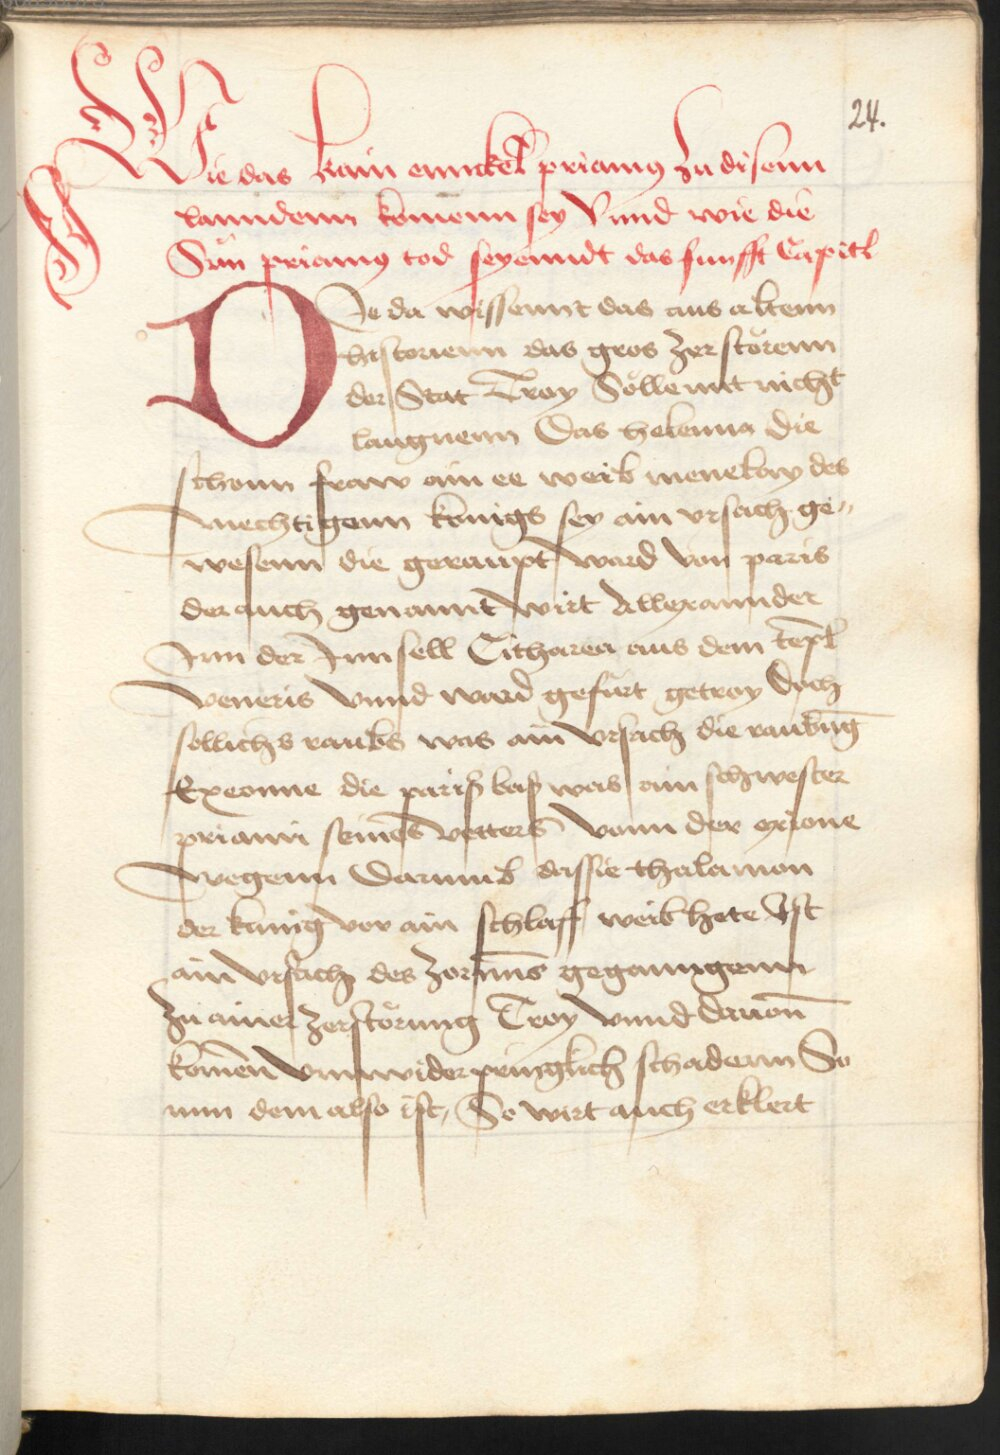 24.
Wie das kain ennickel priamus zu disenn
lanndenn komenn sey Vnnd wie die
Sün priamus tod seyenndt das funfft Capitl
Die da wissennt das aus altenn
historienn das gros zerstörenn
der Stat Troy Söllennt nicht
laugnenn Das helenna die
schonn fraw ain ee weib menelay des
mechtigenn königs sey ain vrsach ge„
wesenn die geraupt ward von paris
der auch genannt wirt Allexannder
Inn der Innsell Citharea aus dem tepl
veneris vnnd ward gefürt getroy Doch
sollichs raubs was ain vrsach die raubūg
Exeonne die paris bas was ain schwester
priami seines vetters vonn der exione
wegenn Darumb dassie thalamon
der kunig vor ain schlaff weib hete Ist
ain vrsach des zornns geganngenn
zu ainer zerstörung Troy vnnd dauon
komen vnnwiderpringlich schadenn So
nun dem also ist, So wirt auch erklert